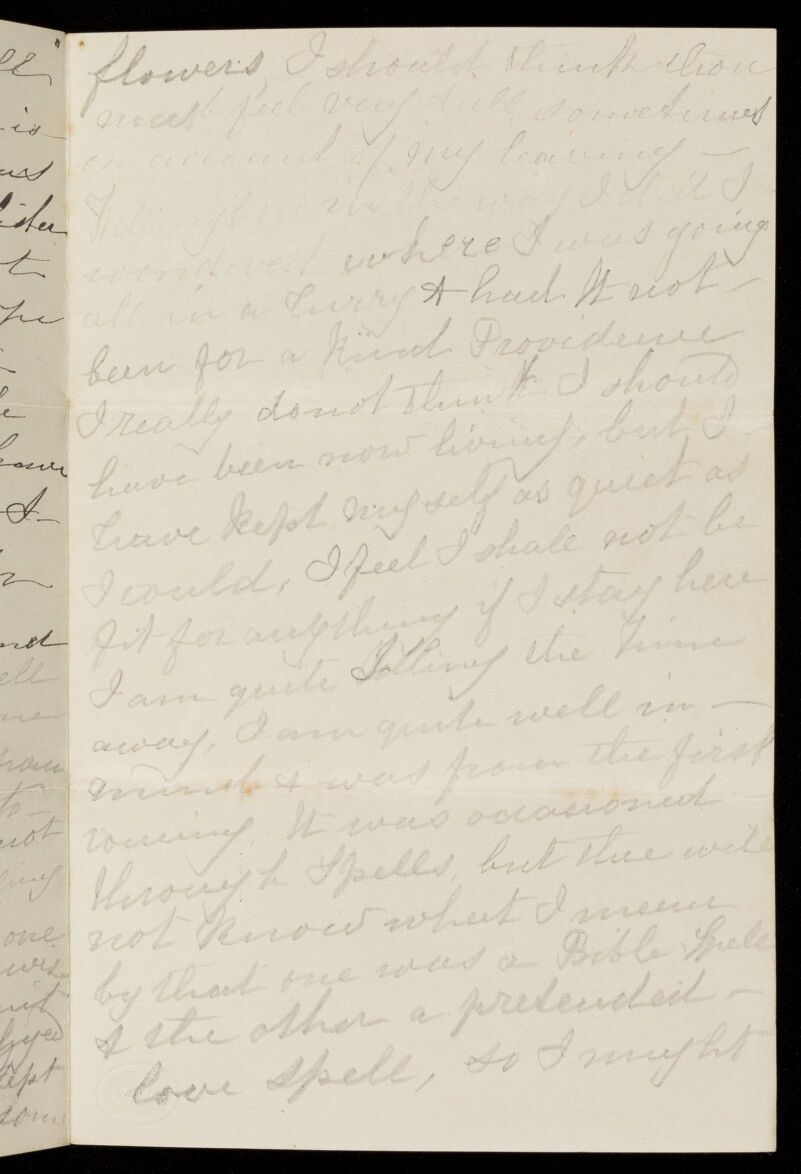 flowers, I should think thou
must feel very dull sometimes
on account of my leaving —
in the way I did I
wondered where I was going
all in a hurry & had it not —
been for a Kind Providence
I really do not think I should
have been now living, but I
have Kept myself as quiet as
I could, I feel I shall not be
fit for anything if I stay here
I am quite Idling the time
away, I am quite well in —
mind & was from the first
coming. It was occasioned
through Spells, but thee will
not Know what I mean
by that one was a Bible Spell
& the other a pretended —
love Spell, so I might
ll
is
as
ister
t
I
nd
ell
from
to
not
one
kept
some